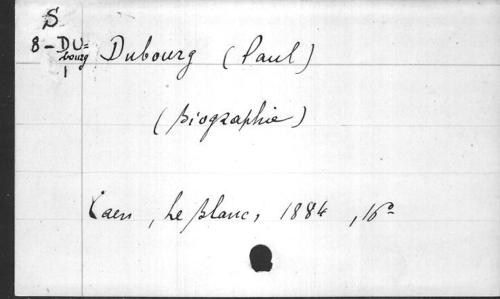 S
8 - DU= Dubourg (Paul)
bourg
1
(Biographie)
Caen, Le Blanc, 1884, 16º